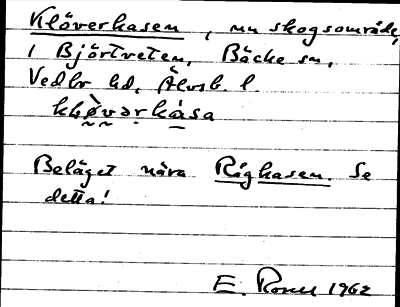 Klöverkasen, nu skogsområde,
i Björtveten, Bäcke sn,
Vedbo hd, Älvsb. l.
klø̀vərkåsa
Beläget nära Rigkasen. Se
detta!
E. 1962